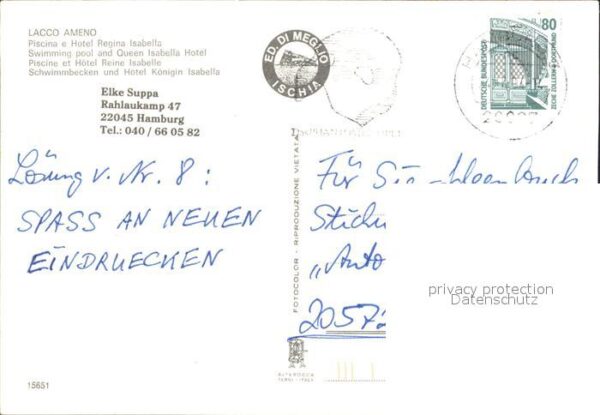 LACCO AMENO
Piscina e Hotel Regina Isabella
Swimming-pool and Queen Isabella Hotel
Piscine et Hôtel Reine Isabelle
Schwimmbecken und Hotel Königin Isabella
Elke Suppa
Rahlaukamp 47
22045 Hamburg
Tel.: 040 / 66 05 82
Lösung v. Nr. 8:
SPASS AN NEUEN
EINDRUECKEN
15651
ED. DI MEGLIO
ISCHIA
FOTOCOLOR - RIPRODUZIONE VIETATA
80
DEUTSCHE BUNDESPOST
ZECHE ZOLLERN II DORTMUND
Für
„Auto
2057
privacy protection
Datenschutz